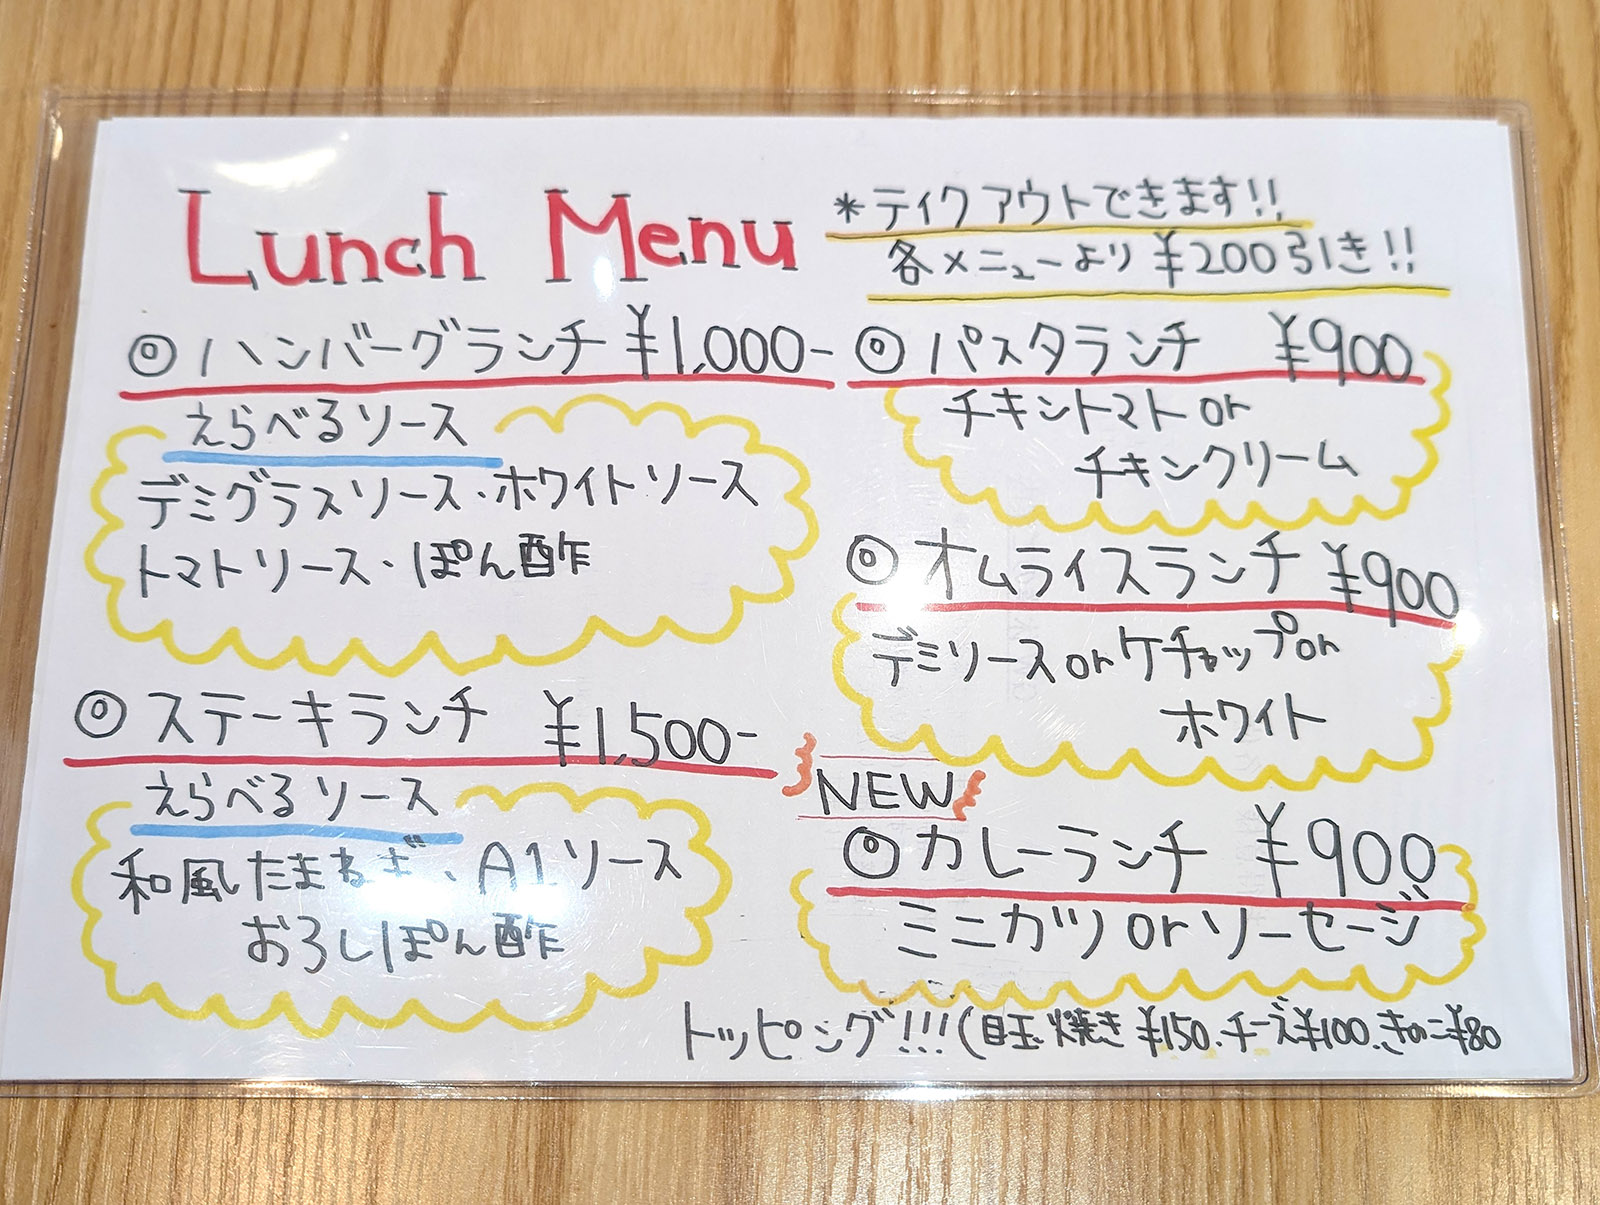 Lunch Menu
*テイクアウトできます!!
各メニューより ¥200引き!!
◎ハンバーグランチ ¥1,000-
えらべるソース
デミグラスソース・ホワイトソース
トマトソース・ぽん酢
◎ステーキランチ ¥1,500-
えらべるソース
和風たまねぎ、A1ソース
おろしぽん酢
◎パスタランチ ¥900
チキントマト or
チキンクリーム
◎オムライスランチ ¥900
デミソース or ケチャップ or
ホワイト
NEW
◎カレーランチ ¥900
ミニカツ or ソーセージ
トッピング!!!(目玉焼き ¥150、チーズ¥100、きのこ¥80